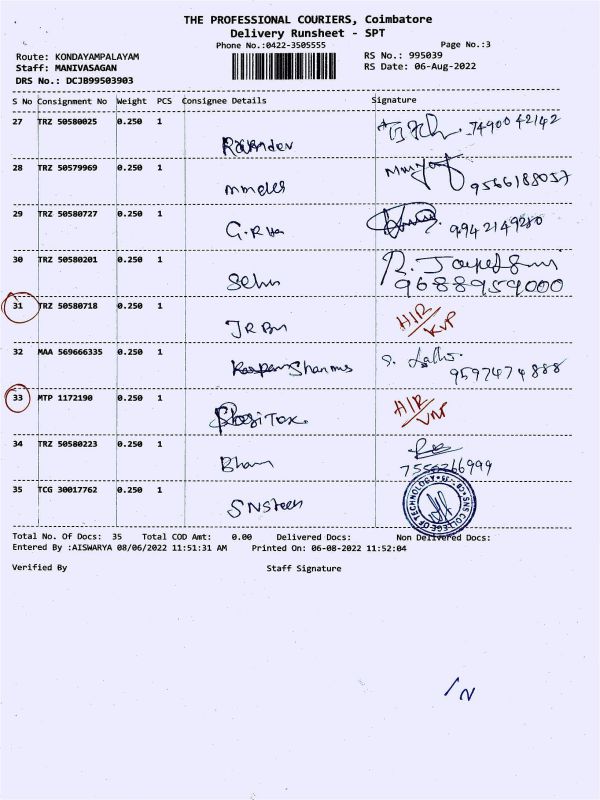 THE PROFESSIONAL COURIERS, Coimbatore
Delivery Runsheet - SPT
Phone No.:0422-3505555 Page No.:3
Route: KONDAYAMPALAYAM RS No.: 995039
Staff: MANIVASAGAN RS Date: 06-Aug-2022
DRS No.: DCJB99503903
S No Consignment No Weight PCS Consignee Details Signature
27 TRZ 50580025 0.250 1 74900 42142
28 TRZ 50579969 0.250 1 9566188057
29 TRZ 50580727 0.250 1 9942149280
30 TRZ 50580201 0.250 1 9688959000
31 TRZ 50580718 0.250 1 JRBM HIR/KVP
32 MAA 569666335 0.250 1 9597474888
33 MTP 1172190 0.250 1 HIR/VNP
34 TRZ 50580223 0.250 1 Bham
35 TCG 30017762 0.250 1 SNSteen SNS COLLEGE OF TECHNOLOGY
Total No. Of Docs: 35 Total COD Amt: 0.00 Delivered Docs: Non Delivered Docs:
Entered By :AISWARYA 08/06/2022 11:51:31 AM Printed On: 06-08-2022 11:52:04
Verified By Staff Signature